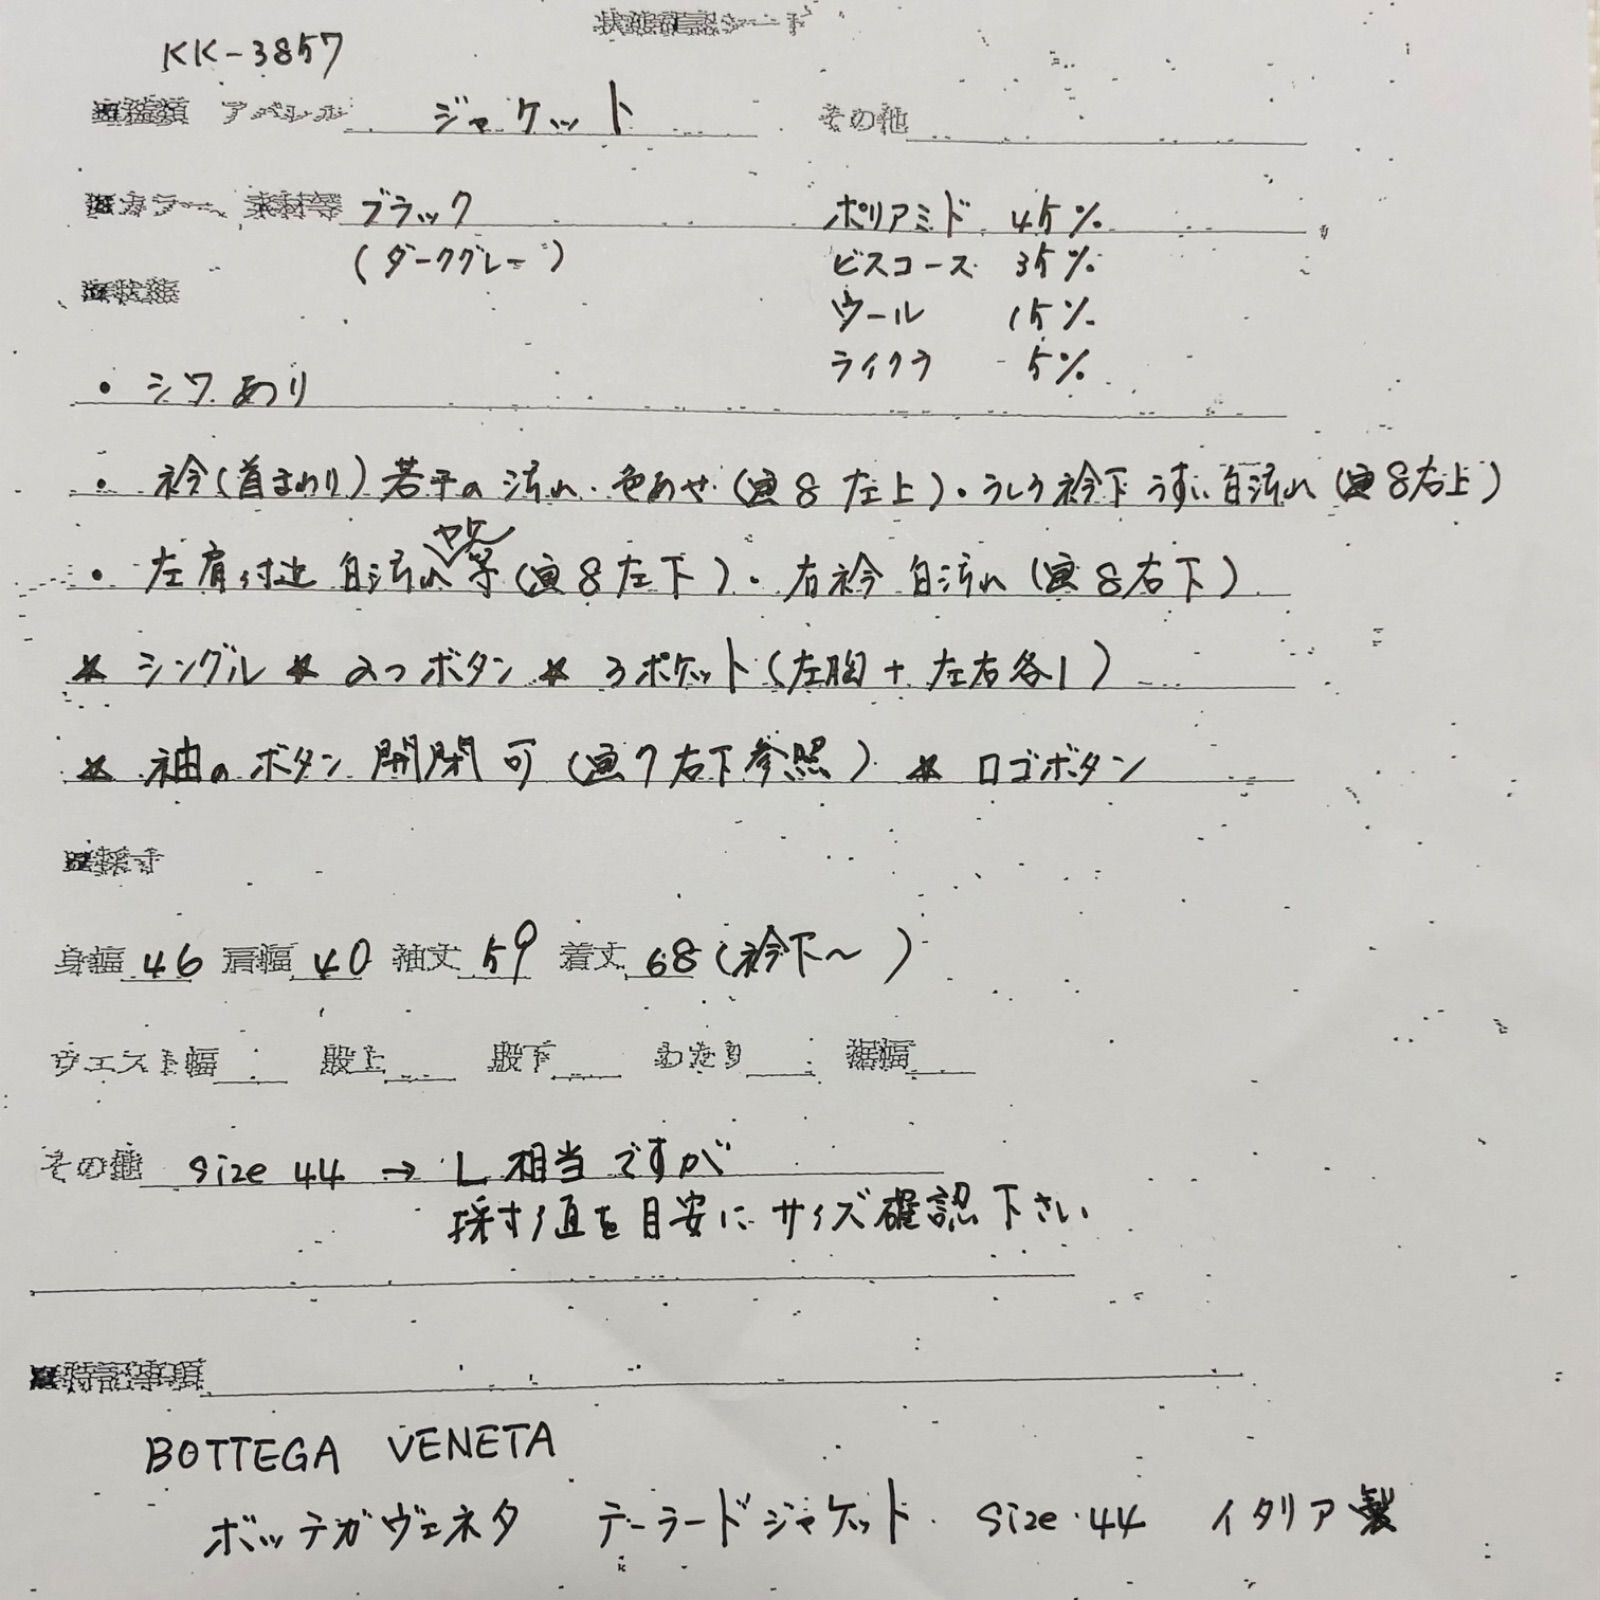 状態確認シート
KK-3857
■種類 アパレル ジャケット その他
■カラー、素材等 ブラック ポリアミド 45%
(ダークグレー) ビスコース 35%
■状態 ウール 15%
ライクラ 5%
・シワあり
・衿(首まわり)若干の汚れ・色あせ(画8左上)・うしろ衿下うすい白汚れ(画8右上)
・左肩付近 白汚れヤケ等(画8左下)・右衿白汚れ(画8右下)
★ シングル ★ 2つボタン ★ 3ポケット(左胸+左右各1)
★ 袖のボタン開閉可(画7右下参照) ★ ロゴボタン
■採寸
身幅 46 肩幅 40 袖丈 59 着丈 68(衿下〜)
ウエスト幅 股上 股下 わたり 裾幅
その他 size 44 → L相当ですが
採寸値を目安にサイズ確認下さい
■特記事項
BOTTEGA VENETA
ボッテガヴェネタ テーラードジャケット size 44 イタリア製